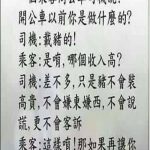 開公車以前你是做什麼的?
司機:載豬的!
乘客:是喔,哪個收入高?
司機:差不多,只是豬不會裝
高貴,不會嫌東嫌西,不會說
謊,更不會客訴
乘客:這樣唷!那如果再讓你